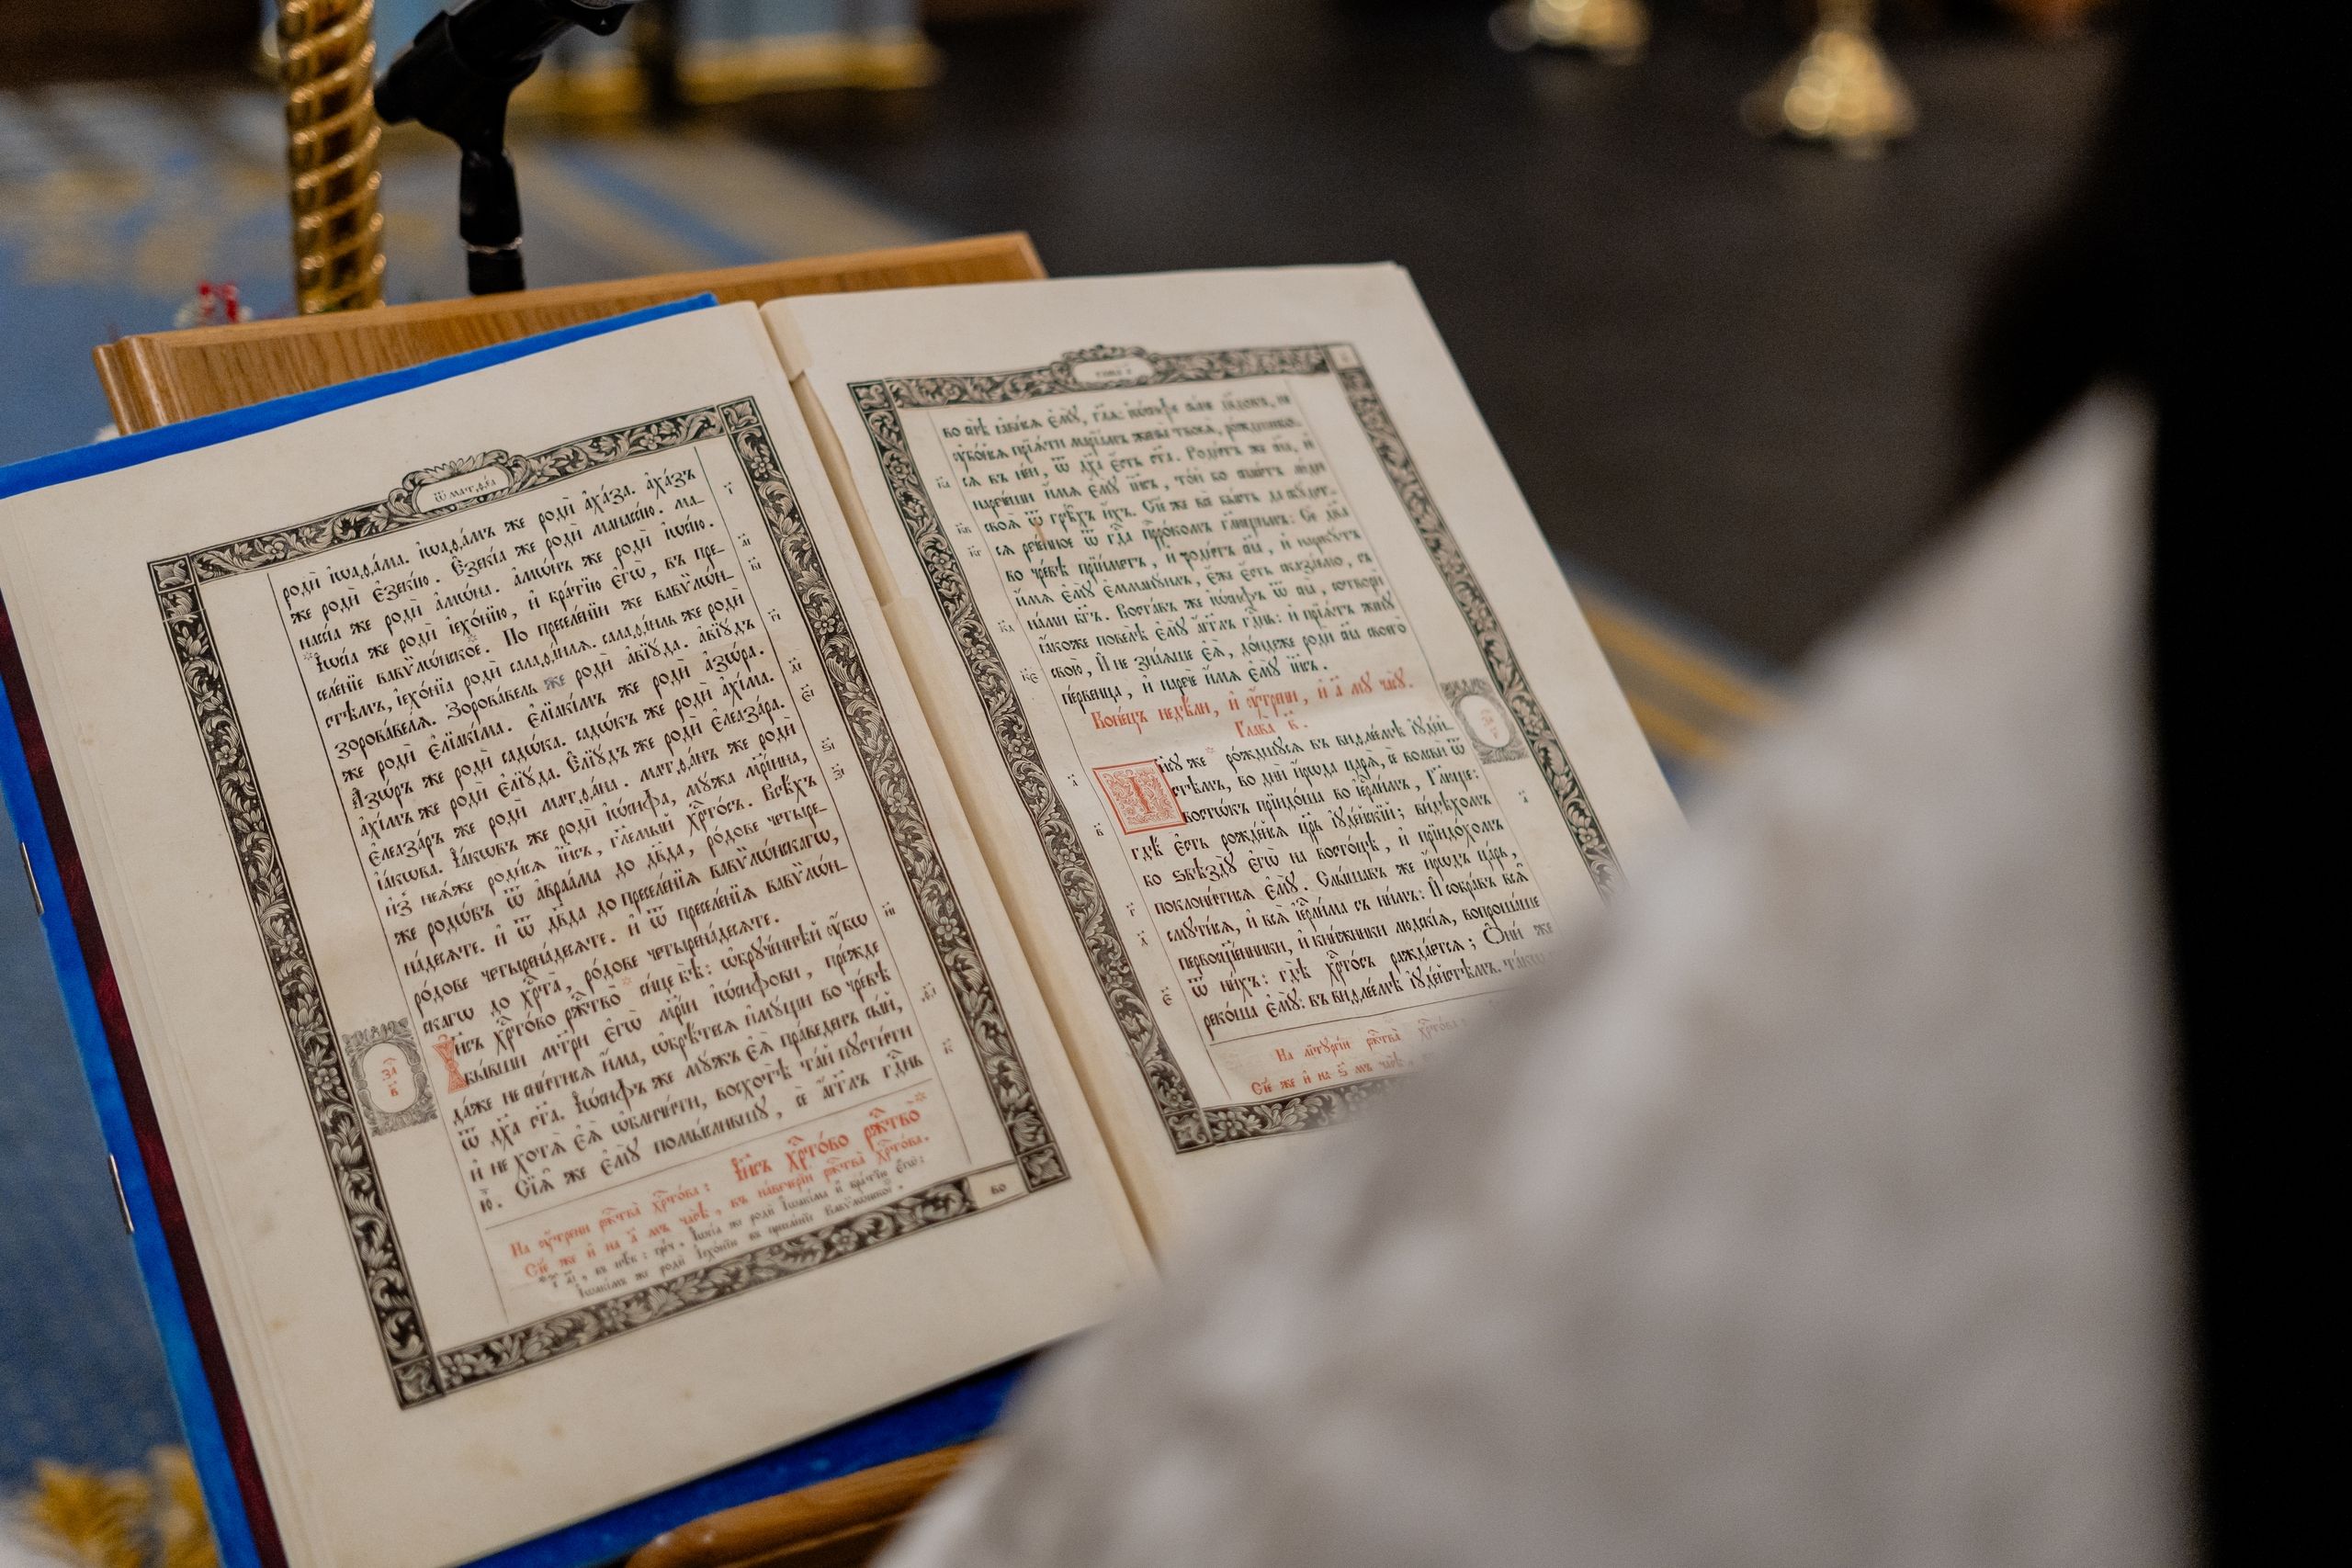 ѿ матѳеа
родѝ і҆ѡаѳа́ма. і҆ѡаѳа́мъ же родѝ а҆ха́за. а҆ха́зъ
же родѝ є҆зекі́ю. Є҆зекі́а же родѝ манассі́ю. ма-
нассі́а же родѝ а҆мѡ́на. а҆мѡ́нъ же родѝ і҆ѡсі́ю.
І҆ѡсі́а же родѝ і҆ехо́нїю, и҆ бра́тїю є҆гѡ̀, въ пре-
селе́нїе вавѷлѡ́нское. По преселе́нїи же вавѷлѡ́н-
стѣмъ, і҆ехо́нїа родѝ салаѳі́илѧ. салаѳі́иль же родѝ
зорова́велѧ. Зорова́вель же родѝ а҆вїꙋ́да. а҆вїꙋ́дъ
же родѝ є҆лїакі́ма. Є҆лїакі́мъ же родѝ а҆зѡ́ра.
А҆зѡ́ръ же родѝ садѡ́ка. садѡ́къ же родѝ а҆хі́ма.
а҆хі́мъ же родѝ є҆лїꙋ́да. Є҆лїꙋ́дъ же родѝ є҆леаза́ра.
є҆леаза́ръ же родѝ матѳа́на. матѳа́нъ же родѝ
і҆а́кѡва. І҆а́кѡвъ же родѝ і҆ѡ́сифа, мꙋ́жа мр҃і́ина,
и҆з̾ неѧ́же роди́сѧ і҆и҃съ, гл҃емый хрⷭ҇то́съ. Всѣ́хъ
же родѡ́въ ѿ а҆враа́ма до дв҃да, ро́дове четыре-
на́десѧте. и҆ ѿ дв҃да до преселе́нїѧ вавѷлѡ́нскагѡ,
ро́дове четырена́десѧте. и҆ ѿ преселе́нїѧ вавѷлѡ́н-
скагѡ до хрⷭ҇та̀, ро́дове четырена́десѧте.
І҆и҃съ хрⷭ҇то́во ржⷭ҇тво̀ си́це бѣ̀: ѡ҆брꙋче́ннѣй ᲂу҆́бѡ
бы́вши мт҃ри є҆гѡ̀ мр҃і́и і҆ѡ́сифови, пре́жде
да́же не сни́тисѧ и҆́ма, ѡ҆брѣ́тесѧ и҆мꙋ́щи во чре́вѣ
ѿ дх҃а ст҃а. І҆ѡ́сифъ же мꙋ́жъ є҆ѧ̀ пра́веденъ сы́й,
и҆ не хотѧ̀ є҆ѧ̀ ѡ҆бличи́ти, восхотѣ̀ та́й пꙋсти́ти
ю҆̀. Сїѧ̑ же є҆мꙋ̀ помы́слившꙋ, сѐ а҆́гг҃лъ гдⷭ҇нь
за҃ в҃
І҆и҃съ хрⷭ҇то́во ржⷭ҇тво̀
На ᲂу҆́трени ржⷭ҇тва̀ хрⷭ҇то́ва: въ наве́черїи ржⷭ҇тва̀ хрⷭ҇то́ва.
Сїѐ же и҆ на а҃ мъ часѣ̀
І҆ѡсі́а же родѝ І҆ѡакі́ма и҆ бра́тїю є҆гѡ̀:
І҆ѡакі́мъ же родѝ І҆ехо́нїю въ преселе́нїи вавѷлѡ́нскомъ.
во
во снѣ̀ ꙗ҆ви́сѧ є҆мꙋ̀, гл҃ѧ: і҆ѡ́сифе сы́не дв҃довъ, не
ᲂу҆бо́йсѧ прїѧ́ти мр҃їа́мъ жены̀ твоеѧ̀, ро́ждшее-
сѧ въ не́й, ѿ дх҃а є҆́сть ст҃а. Роди́тъ же сн҃а, и҆
нарече́ши и҆́мѧ є҆мꙋ̀ і҆и҃съ, то́й бо сп҃се́тъ лю́ди
своѧ̑ ѿ грѣ̑хъ и҆́хъ. Сїе́ же всѐ бы́сть да сбꙋ́дет-
сѧ рече́нное ѿ гдⷭ҇а прⷪ҇ро́комъ гл҃ющимъ: Сѐ дв҃а
во чре́вѣ прїи́метъ, и҆ роди́тъ сн҃а, и҆ нарекꙋ́тъ
и҆́мѧ є҆мꙋ̀ є҆мманꙋи́лъ, є҆́же є҆́сть сказа́емо, съ
на́ми бг҃ъ. Воста́въ же і҆ѡ́сифъ ѿ сна̀, сотворѝ
ꙗ҆́коже повелѣ̀ є҆мꙋ̀ а҆́гг҃лъ гдⷭ҇нь: и҆ прїѧ́тъ женꙋ̀
свою̀, И҆ не зна́ѧше є҆ѧ̀, до́ндеже родѝ сн҃а своего̀
пе́рвенца, и҆ наречѐ и҆́мѧ є҆мꙋ̀ і҆и҃съ.
Коне́цъ недѣ́ли, и҆ ᲂу҆́трени, и҆ а҃ мꙋ часꙋ̀.
Глава̀ в҃.
І҆и҃сꙋ же ро́ждшꙋсѧ въ виѳлее́мѣ і҆ꙋде́й-
стѣмъ, во дни̑ и҆́рѡда царѧ̀, сѐ волсвѝ ѿ
восто́къ прїидо́ша во і҆ерⷭ҇ли́мъ, Гл҃юще:
гдѣ̀ є҆́сть рожде́йсѧ цр҃ь і҆ꙋде́йскїй; ви́дѣхомъ
бо ѕвѣздꙋ̀ є҆гѡ̀ на восто́цѣ, и҆ прїидо́хомъ
поклони́тисѧ є҆мꙋ̀. Слы́шавъ же и҆́рѡдъ ца́рь,
смꙋти́сѧ, и҆ всѧ̀ і҆ерⷭ҇ли́ма съ ни́мъ: И҆ собра́въ всѧ̑
первосщ҃е́нники, и҆ кни́жники людскі́ѧ, вопроша́ше
ѿ ни́хъ: гдѣ̀ хрⷭ҇то́съ ражда́етсѧ; Ѻ҆ни́ же
реко́ша є҆мꙋ̀: въ виѳлее́мѣ і҆ꙋде́йстѣмъ. та́кѡ
На літꙋргі́и ржⷭ҇тва̀ хрⷭ҇то́ва
Сїе́ же и҆ на ѕ҃ мъ часѣ̀